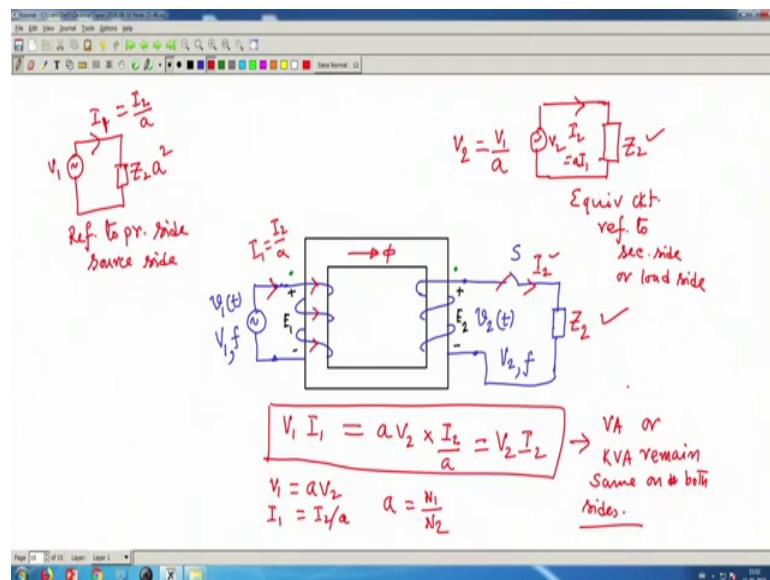 File Edit View Journal Tools Options Help
Sans Normal 12
I_p = I_2/a
V_1
Z_2 a^2
Ref. to pr. side
source side
V_2 = V_1/a
V_2
I_2
= aI_1
Z_2 ✓
Equiv ckt.
ref. to
sec. side
or load side
I_1 = I_2/a
→ φ
S
I_2 ✓
v_1(t)
V_1, f
+
E_1
-
+
E_2
-
v_2(t)
V_2, f
Z_2 ✓
V_1 I_1 = aV_2 × I_2/a = V_2 I_2
→ VA or
KVA remain
same on both
sides.
V_1 = aV_2
I_1 = I_2/a
a = N_1/N_2
of 15 Layer: Layer 1